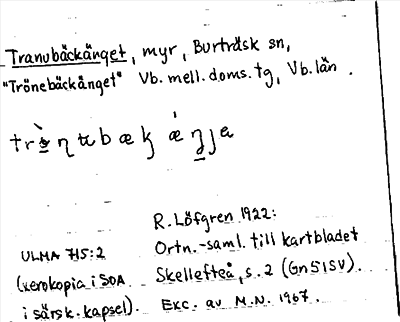 Tranubäckänget, myr, Burträsk sn,
"Trönebäckänget" Vb. mell. doms. tg, Vb. län.
R. Löfgren 1922:
ULMA 715:2 Ortn.-saml. till kartbladet
(xerokopia i SOA Skellefteå, s. 2 (Gn 51SV).
i särsk. kapsel). Exc. av M.N. 1967.